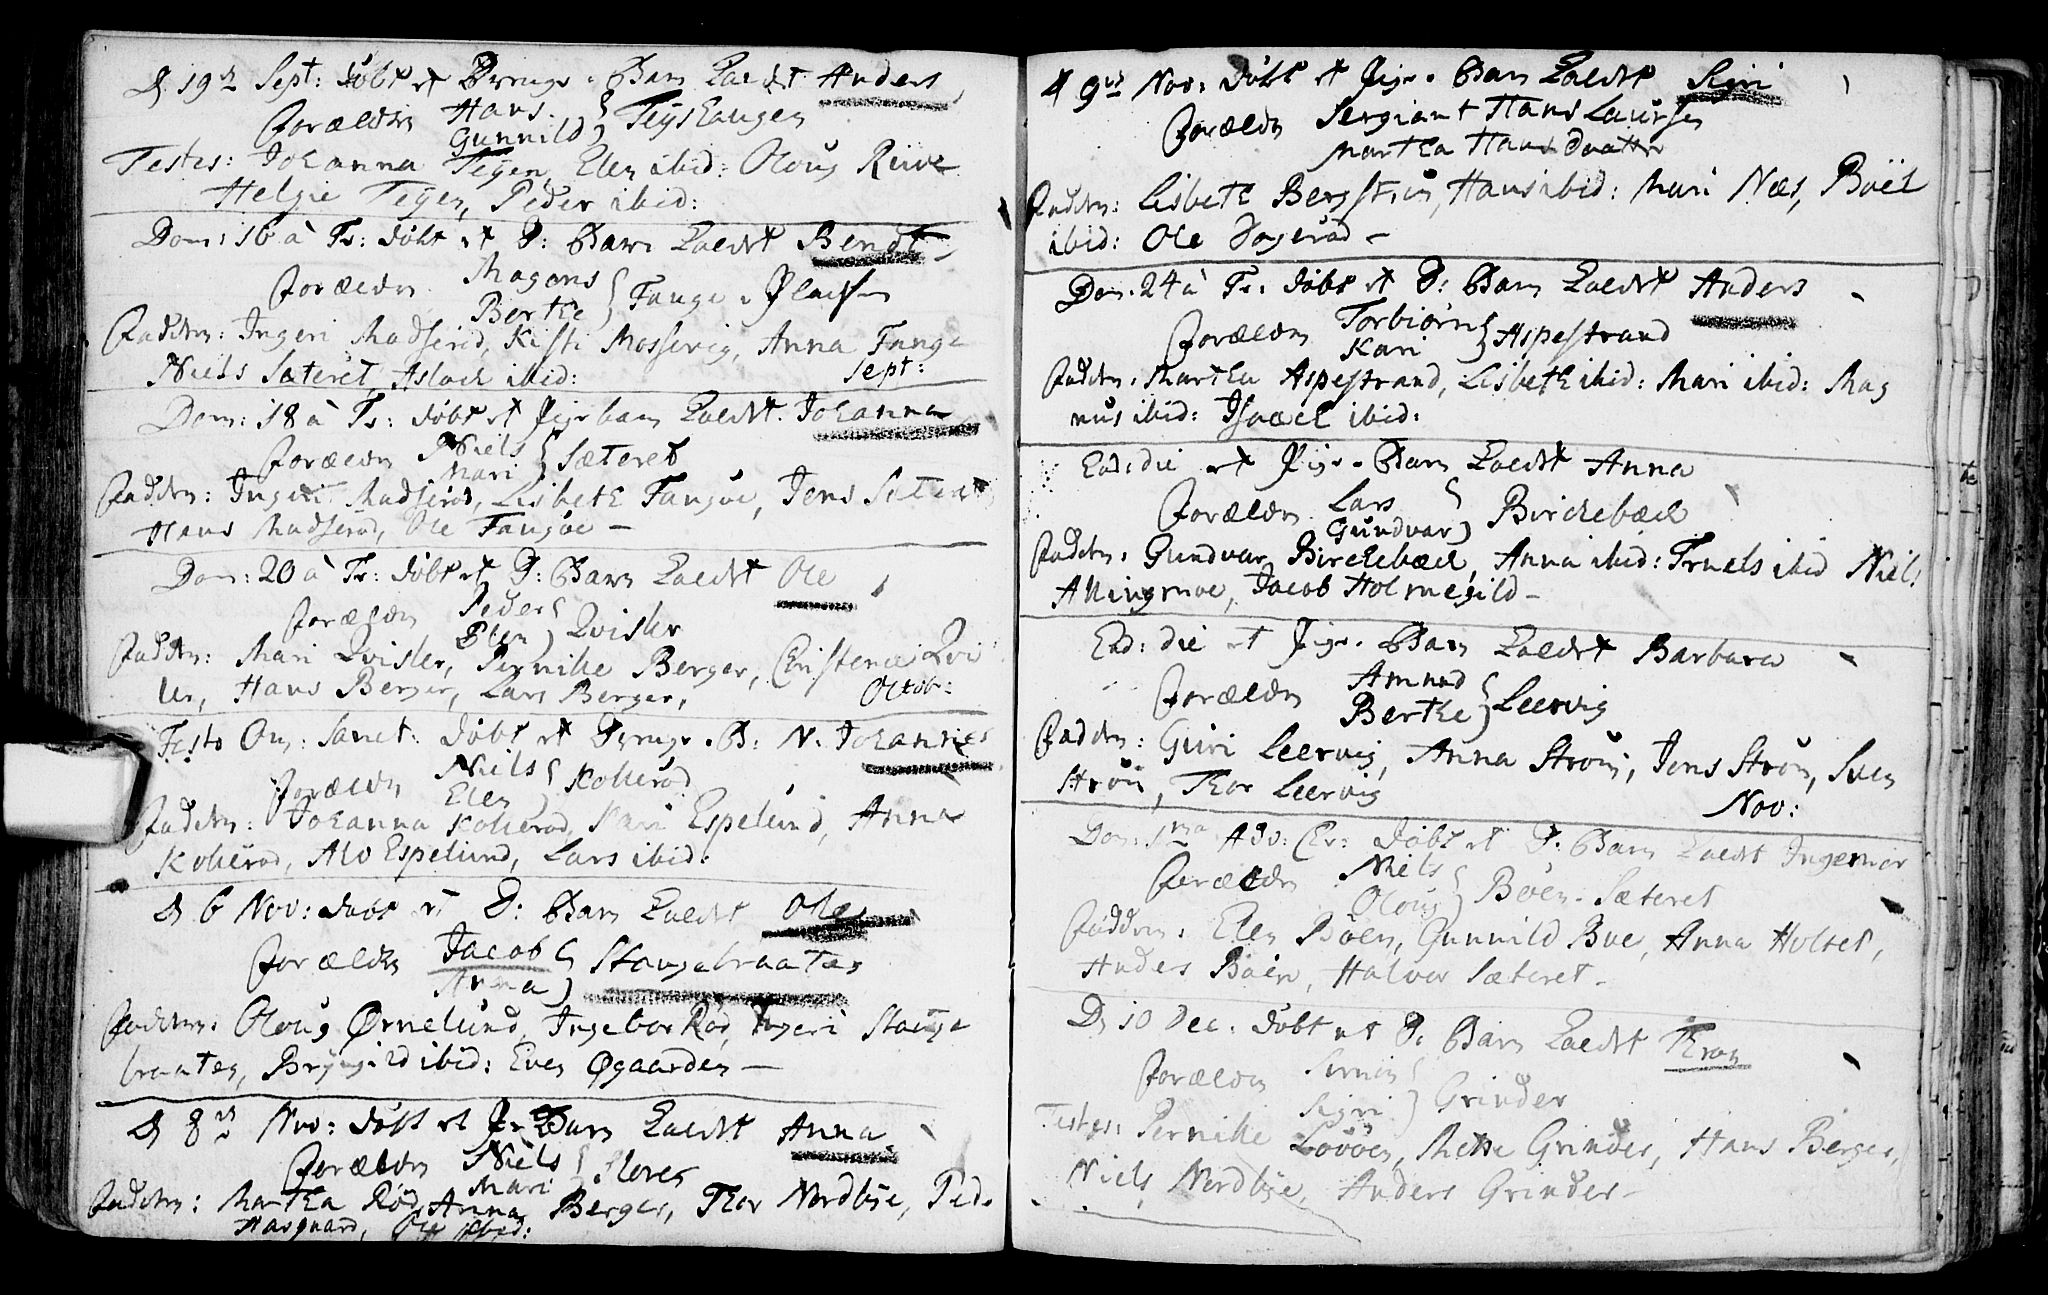 D 19de Sept: døbt et Drenge-Barn Kaldet Anders
Forældre Hans
Gunnild } Teÿslaugen
Testes: Johanna Tegen, Elen ibid: Oloug Riive
Helgie Tegen, Peder ibid:
Dom: 16 à Tr: døbt et D: Barn Kaldet Bendt
Forældre Magens
Berthe } Fange-Pladsen
Faddere: Ingeri Madserud, Kisti Mosservig, Anna Fange
Niels Sæteret, Aslach ibid:
Sept:
Dom: 18 à Tr: døbt et Pigebarn Kaldet Johanna
Forældre Niels
Mari } Sæteret
Faddere: Ingeri Madserød, Lisbeth Fangøe, Jens Sæteret
Hans Madserød, Ole Fangøe –
Dom: 20 à Tr: døbt et D: Barn Kaldet Ole
Forældre Peder
Elen } Qvisler
Faddere: Mari Qvisler, Pernille Berger, Christence Qvi
ler, Hans Berger, Lars Berger,
Octobr:
Festo Om: Sanct: døbt et Drenge-B: N. Johannes
Forældre Niels
Elen } Kollerød
Faddere: Johanna Kollerød, Kari Espelund, Anna
Kollerød, Alv Espelund, Lars ibid:
D 6 Nov: døbt et D: Barn Kaldet Ole
Forældre Jacob
Anna } Stangebraaten
Faddere: Oloug Ørnelund, Ingebor Rød, Ingeri Stange
braaten, Bryngild ibid: Even Øgaarden –
D 8de Nov: døbt et P: Barn Kaldet Anna
Forældre Niels
Mari } Floren
Faddere: Martha Rød, Anna Berger, Thor Nordbye, Ped.
Haegaard, Ole ibid:
D 9de Nov: døbt et Pige-Barn Kaldet Sigri
Forældre Sergiant Hans Laursen
Martha Hans Daatter
Faddere: Lisbeth Bergstrøm, Hans ibid: Mari Næs, Boël
ibid: Ole
Dom. 24 à Tr: døbt et D: Barn Kaldet Anders
Forældre Torbiørn
Kari } Aspestrand
Faddere: Martha Aspestrand, Lisbeth ibid: Mari ibid: Mag
nus ibid: Israel ibid:
Ead: die et Pige-Barn Kaldet Anna
Forældre Lars
Gundvar } Birchebæch
Faddere: Gundvar Birchebæch, Anna ibid: Truels ibid Niels
Allingmoe, Jacob Holmegild –
Ead: die et Pige-Barn Kaldet Barbara
Forældre Amund
Berthe } Leervig
Faddere: Guri Leervig, Anna Strøm, Jens Strøm, Sven
Strøm, Thor Leervig
Nov:
Dom: 1ma Adv: Chr: døbt et D: Barn Kaldet Ingemar
Forældre Niels
Oloug } Boen-Sæteret
Faddere: Elen Boen, Gunnild Boe, Anna Holtet,
Anders Boen, Halvor Sæteret –
D 10 Dec: døbt et D: Barn Kaldet Thron
Forældre Simen
Sigri } Grinder
Testes: Pernille Løvøen, Mette Grinder, Hans Berger,
Niels Nordbye, Anders Grinder –